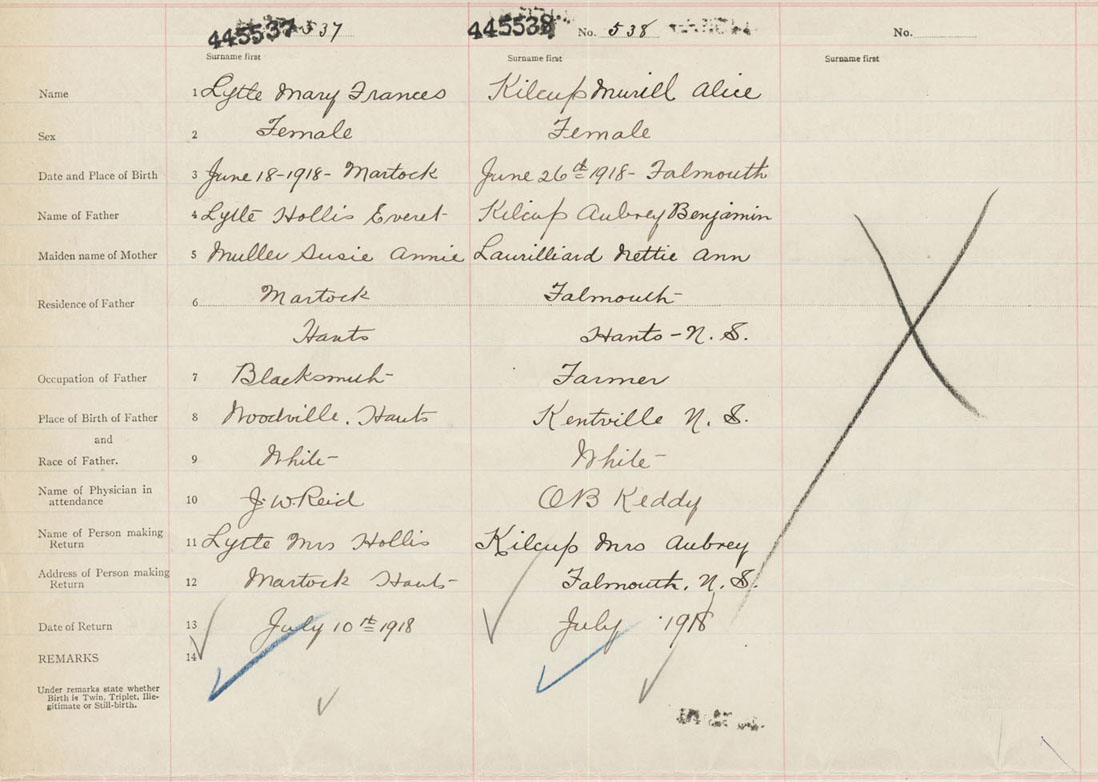 445537 537 445538 No. 538 No.
Surname first Surname first Surname first
Name 1 Lytte Mary Frances Kilcup Murill Alice
Sex 2 Female Female
Date and Place of Birth 3 June 18-1918- Martock June 26th 1918- Falmouth
Name of Father 4 Lytte Hollis Everet Kilcup Aubrey Benjamin
Maiden name of Mother 5 Muller Susie Annie Laurilliard Nettie Ann
Residence of Father 6 Martock Falmouth
Hants Hants-N.S.
Occupation of Father 7 Blacksmith Farmer
Place of Birth of Father 8 Woodville. Hants Kentville N.S.
and
Race of Father. 9 White White
Name of Physician in
attendance 10 J. W. Reid OB Keddy
Name of Person making
Return 11 Lytte Mrs Hollis Kilcup Mrs Aubrey
Address of Person making
Return 12 Martock Hants Falmouth, N.S.
Date of Return 13 July 10th 1918 July 1918
REMARKS 14
Under remarks state whether
Birth is Twin, Triplet, Ille-
gitimate or Still-birth.